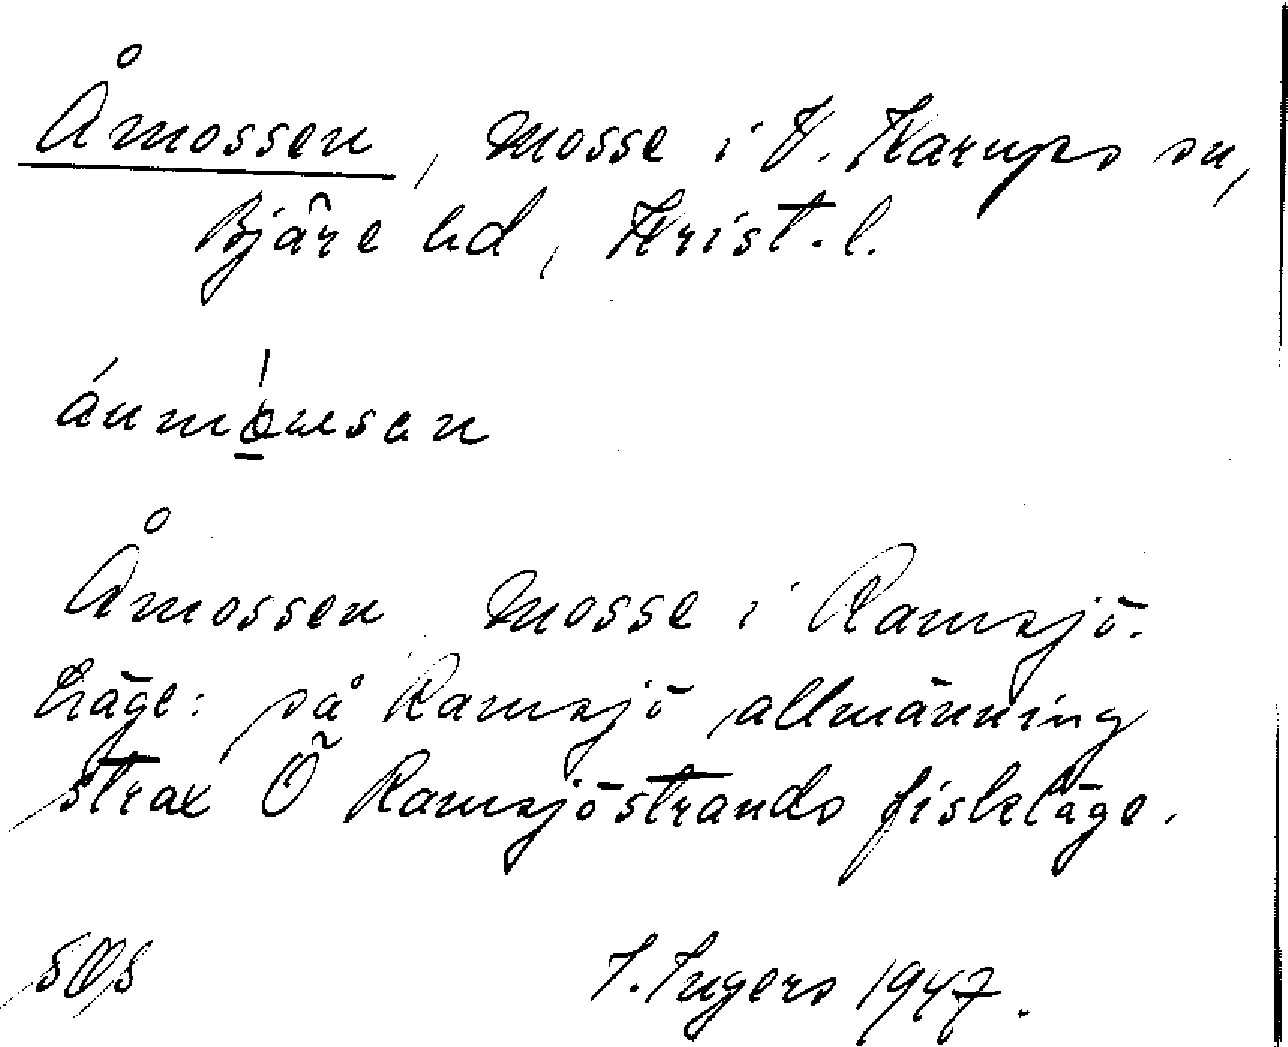 Åmossen, mosse i V. Karups sn,
Bjäre hd, Krist. l.
Åmossen mosse i Ramsjö.
Läge: på Ramsjö allmänning
strax Ö Ramsjöstrands fiskeläge.
SOS I. Ingers 1947.